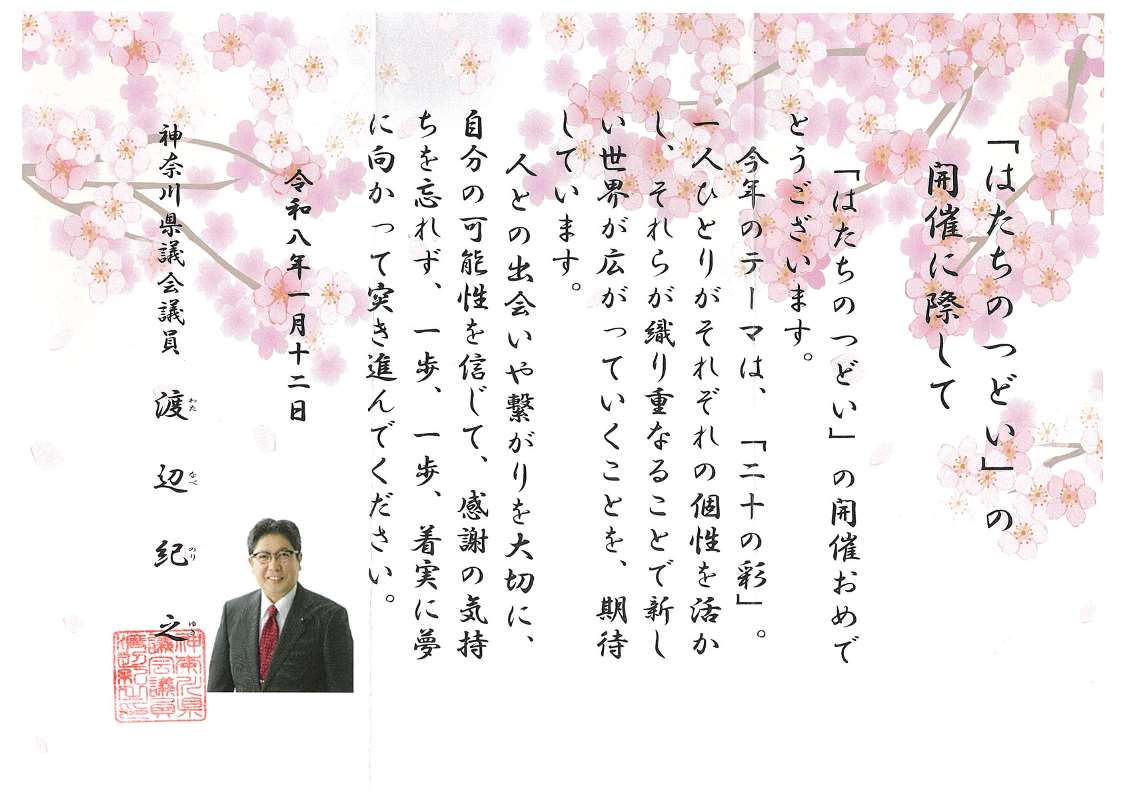 「はたちのつどい」の
開催に際して
「はたちのつどい」の開催おめで
とうございます。
今年のテーマは、「二十の彩」。
一人ひとりがそれぞれの個性を活か
し、それらが織り重なることで新し
い世界が広がっていくことを、期待
しています。
人との出会いや繋がりを大切に、
自分の可能性を信じて、感謝の気持
ちを忘れず、一歩、一歩、着実に夢
に向かって突き進んでください。
令和八年一月十二日
神奈川県議会議員 渡辺紀之
わた なべ のり ゆき
神奈川県
議会議員